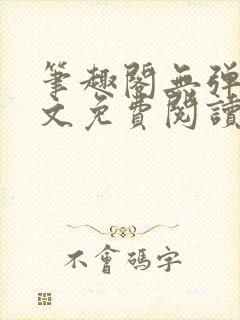 筆趣閣無彈
文免費閱讀
不會碼字